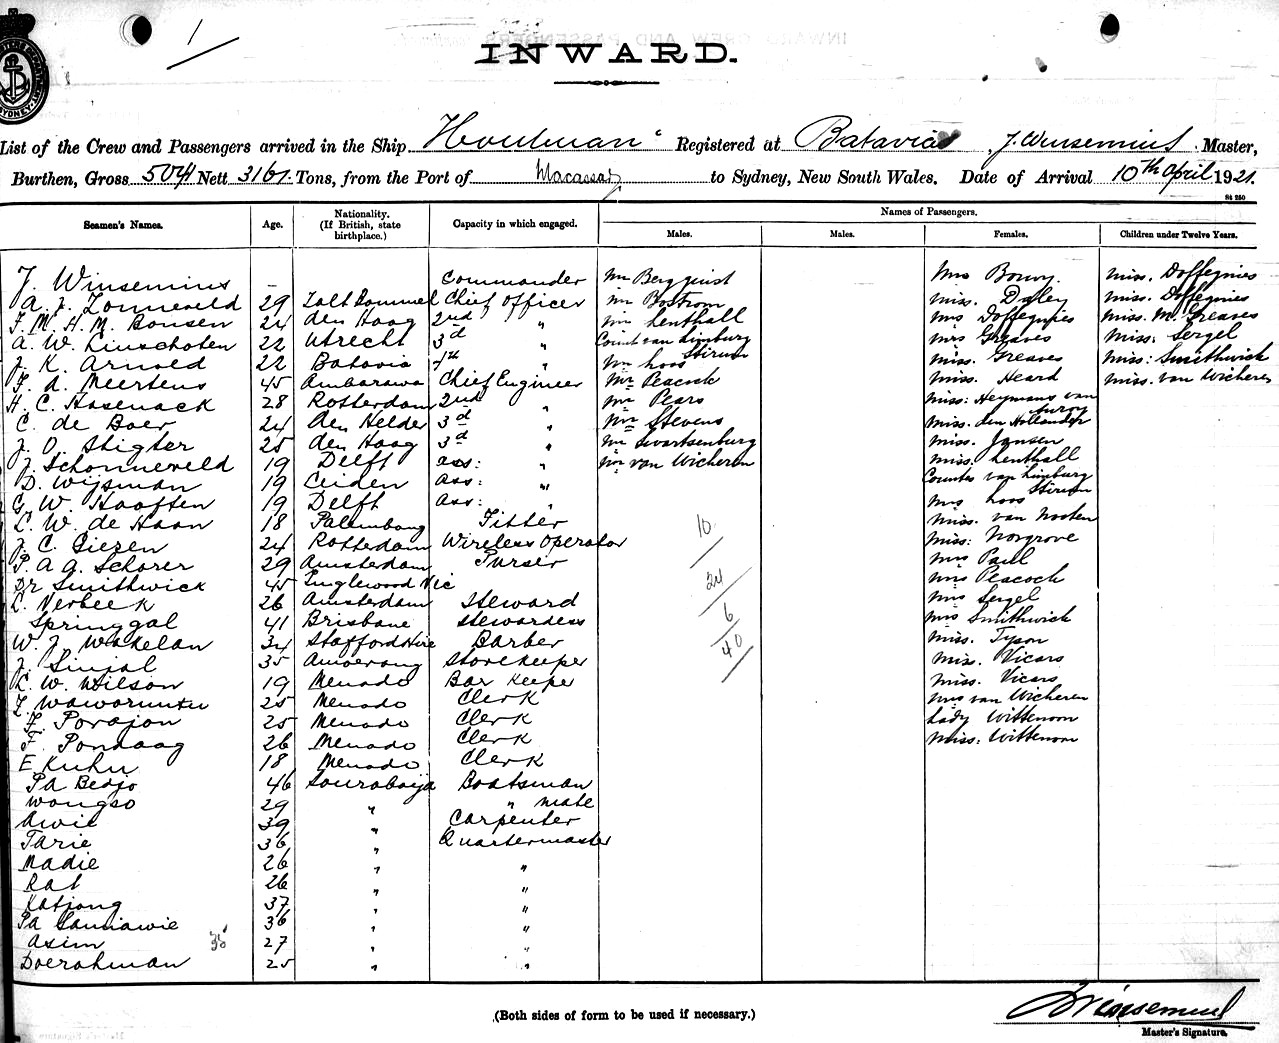 1
INWARD.
List of the Crew and Passengers arrived in the Ship "Houtman" Registered at Batavia, J. Winsemius Master,
Burthen, Gross 5041 Nett 3161 Tons, from the Port of Macassar to Sydney, New South Wales. Date of Arrival 10th April 1921.
St 250
Seamen's Names. Age. Nationality. (If British, state birthplace.) Capacity in which engaged. Names of Passengers.
Males. Males. Females. Children under Twelve Years.
J. Winsemius — Commander Mr Bergquist Mrs Bouwy Miss. Doffegnies
A. J. Zonneveld 29 Zalt Bommel Chief Officer Mr Bostrom Miss. Daley Miss. Doffegnies
F. M. H. M. Bonsen 24 den Haag 2nd " Mr Lenthall Mrs Doffegnies Miss. M. Greaves
A. W. Linschoten 22 Utrecht 3d " Count van Limburg Stirum Mrs Greaves Miss. Sergel
J. K. Arnold 22 Batavia 4th " Mr Loos Miss. Greaves Miss. Smithwick
F. A. Meertens 45 Ambarawa Chief Engineer Mr Peacock Miss. Heard Miss. van Wicheren
H. C. Hasenack 28 Rotterdam 2nd " Mr Pears Miss. Heymans van
C. de Boer 24 den Helder 3d " Mr Stevens Miss. den Hollander
J. O. Stigter 25 den Haag 3d " Mr Swartsenburg Miss. Jansen
J. Schonneveld 19 Delft ass: " Mr van Wicheren Miss. Lenthall
D. Wijsman 19 Leiden ass: " Countes van Limburg Stirum
G. W. Haaften 19 Delft ass: " Mrs Loos
L. W. de Haan 18 Palembang Fitter Miss. van Nooten
J. C. Giezen 24 Rotterdam Wireless Operator Miss. Norgrove
P. A. G. Schorer 29 Amsterdam Purser Mrs Paul
Dr Smithwick 45 Inglewood Vic Mrs Peacock
L. Verbeek 26 Amsterdam Steward Mrs Sergel
Springgal 41 Brisbane Stewardess Mrs Smithwick
W. J. Wakelan 34 Staffordshire Barber Miss. Tyson
J. Sinjal 35 Amoerang Storekeeper Miss. Vicars
L. W. Wilson 19 Menado Bar Keeper Miss. Vicars
Z Waworuntu 25 Menado Clerk Mrs van Wicheren
F. Porajon 25 Menado Clerk Lady Wittenoom
F. Pondaag 26 Menado Clerk Miss. Wittenoom
E Kuhn 18 Menado Clerk
Pa Bedjo 46 Sourabaija Boatsman
Wongso 29 " " mate
Awie 39 " Carpenter
Tarie 36 " Quartermaster
Madie 26 " "
Rat 26 " "
Katjong 37 " "
Pa Samiawie 36 " "
Asim 27 " "
Doerahman 25 " "
10
24
6
40
(Both sides of form to be used if necessary.)
J Winsemius
Master's Signature.